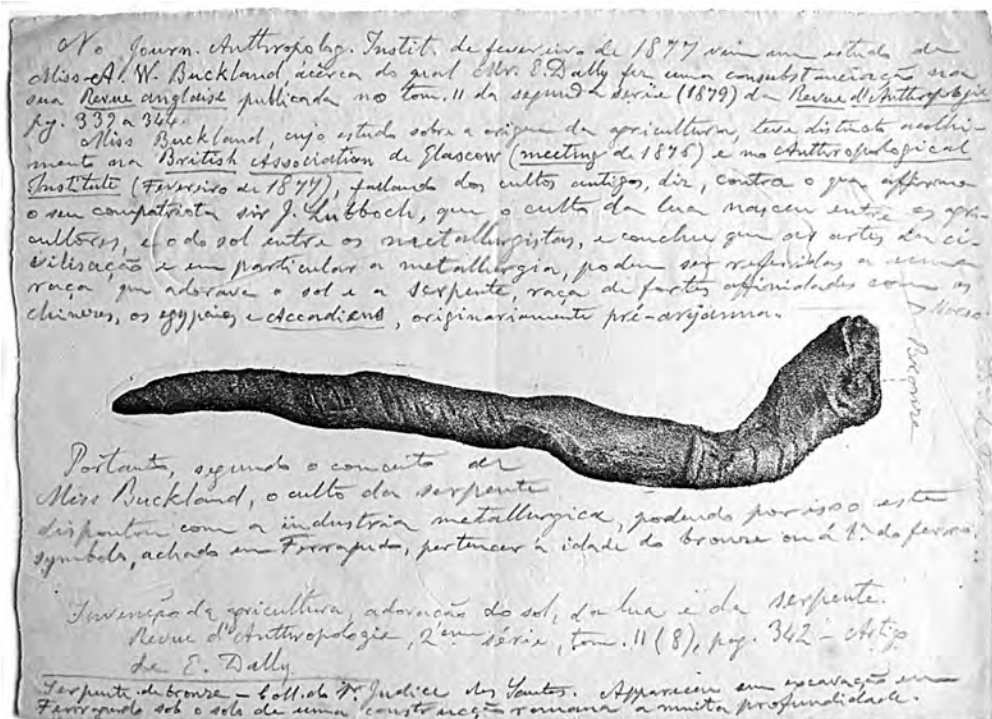 No Journ. Anthropolog. Instit. de fevereiro de 1877 vem um estudo de
Miss A. W. Buckland, ácerca do qual Mr. E. Dally fez uma consubstanciação na
sua Revue anglaise publicada no tom. II da segunda série (1879) da Revue d'Anthropologie
pg. 339 a 344.
Miss Buckland, cujo estudo sobre a origem da agricultura, teve distincto acolhi-
mento na British Association de Glascow (meeting de 1876) e no Anthropological
Institute (Fevereiro de 1877), fallando dos cultos antigos, diz, contra o que affirma
o seu compatriota sir J. Lubboch, que o culto da lua nasceu entre os agri-
cultores, e o do sol entre os metallurgistas, e conclue que as artes da ci-
vilisação e em particular a metallurgia, podem ser referidas a uma
raça que adorava o sol e a serpente, raça de fortes affinidades com os
chineses, os egypcios e Accadiens, originariamente pré-aryanna.
Bronze
Portanto, segundo o conceito de
Miss Buckland, o culto da serpente
dispontou com a industria metallurgica, podendo por isso este
symbolo, achado em Ferragudo, pertencer á idade do bronze ou á 1ª do ferro.
Invenção da agricultura, adoração do sol, da lua e da serpente.
Revue d'Anthropologie, 2ème série, tom. II (8), pag. 342 - Artigo
de E. Dally
Serpente de bronze - Coll. do Dr. Judice dos Santos. Appareceu em excavação em
Ferragudo sob o solo de uma construcção romana a muita profundidade.